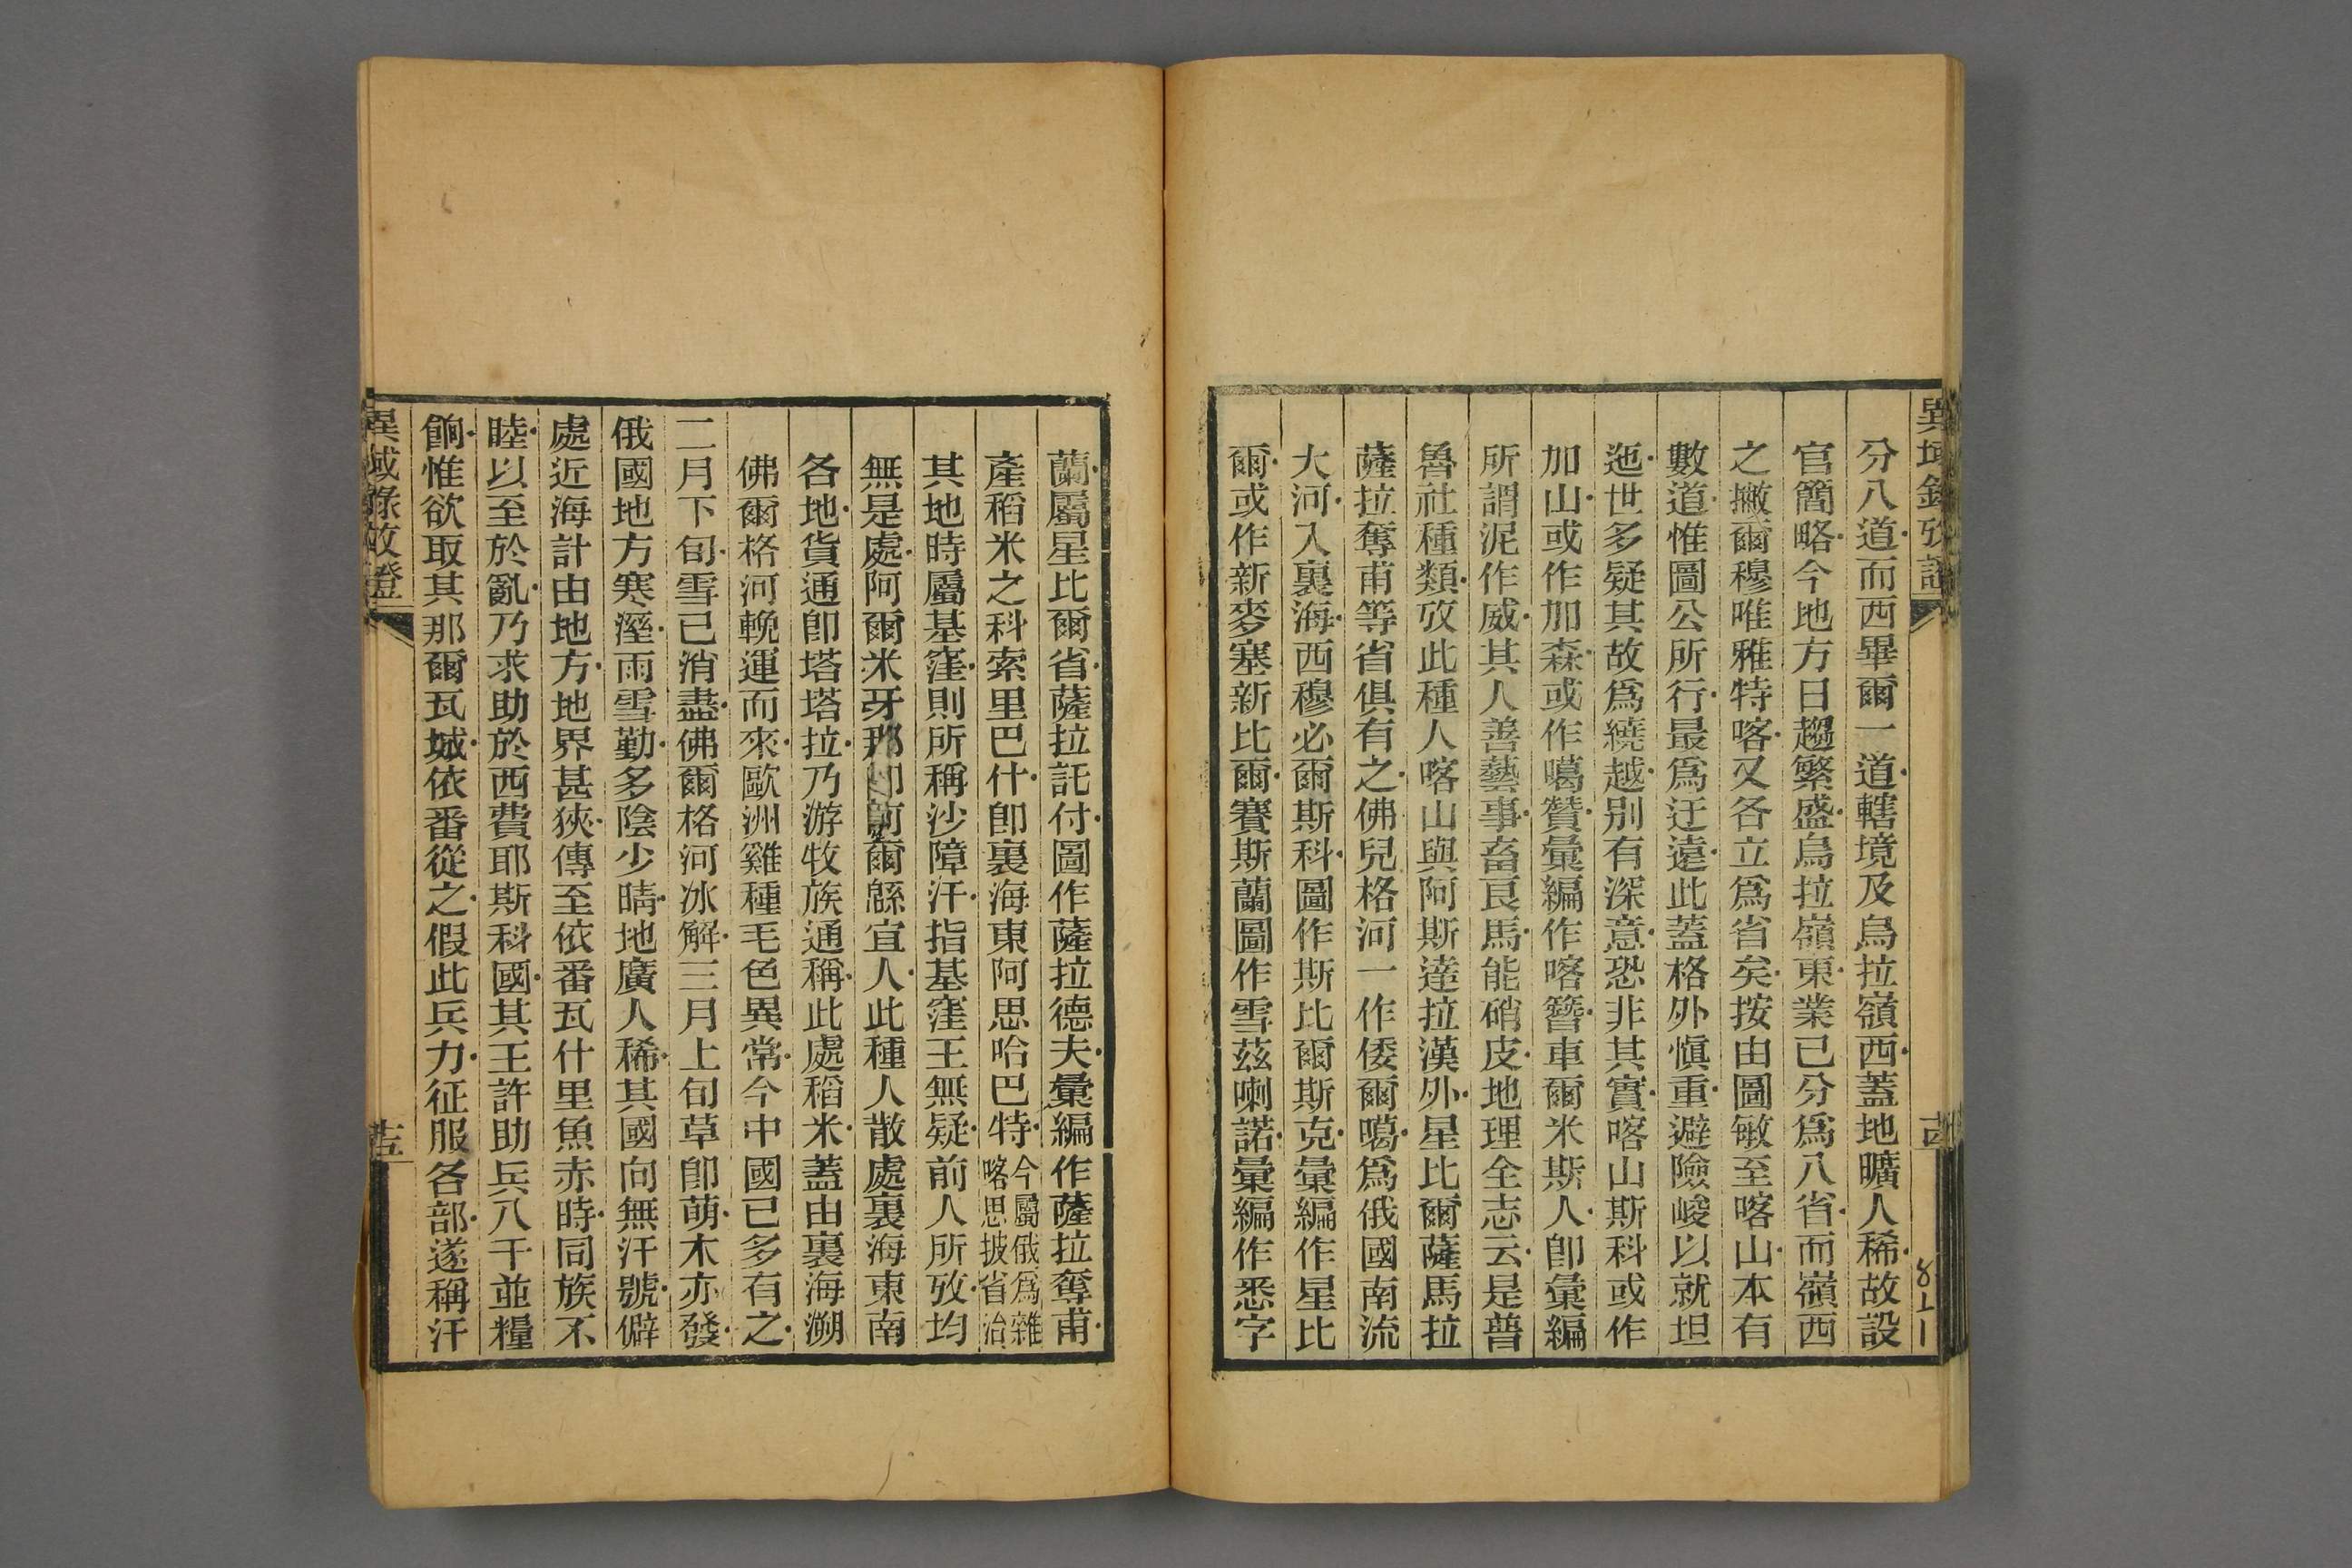 異域錄攷證
十四
分八道而西畢爾一道轄境及烏拉嶺西蓋地曠人稀故設
官簡略今地方日趨繁盛烏拉嶺東業已分爲八省而嶺西
之撇爾穆唯雅特喀又各立爲省矣按由圖敏至喀山本有
數道惟圖公所行最爲迂遠此蓋格外愼重避險峻以就坦
迤世多疑其故爲繞越别有深意恐非其實喀山斯科或作
加山或作加森或作噶贊彙編作喀簪車爾米斯人卽彙編
所謂泥作威其人善藝事畜良馬能硝皮地理全志云是普
魯社種類攷此種人喀山與阿斯達拉漢外星比爾薩馬拉
薩拉奪甫等省俱有之佛兒格河一作倭爾噶爲俄國南流
大河入裏海西穆必爾斯科圖作斯比爾斯克彙編作星比
爾或作新麥塞新比爾賽斯蘭圖作雪茲喇諾彙編作悉字
蘭屬星比爾省薩拉託付圖作薩拉德夫彙編作薩拉奪甫
產稻米之科索里巴什卽裏海東阿思哈巴特今屬俄爲雜
喀思披省治
其地時屬基窪則所稱沙障汗指基窪王無疑前人所攷均
無是處阿爾米牙那卽前爾緜宜人此種人散處裏海東南
各地貨通卽塔塔拉乃游牧族通稱此處稻米蓋由裏海溯
佛爾格河輓運而來歐洲雞種毛色異常今中國已多有之
二月下旬雪已消盡佛爾格河冰解三月上旬草卽萌木亦發
俄國地方寒溼雨雪勤多陰少晴地廣人稀其國向無汗號僻
處近海計由地方地界甚狹傳至依番瓦什里魚赤時同族不
睦以至於亂乃求助於西費耶斯科國其王許助兵八千並糧
餉惟欲取其那爾瓦城依番從之假此兵力征服各部遂稱汗
異域錄攷證
十五